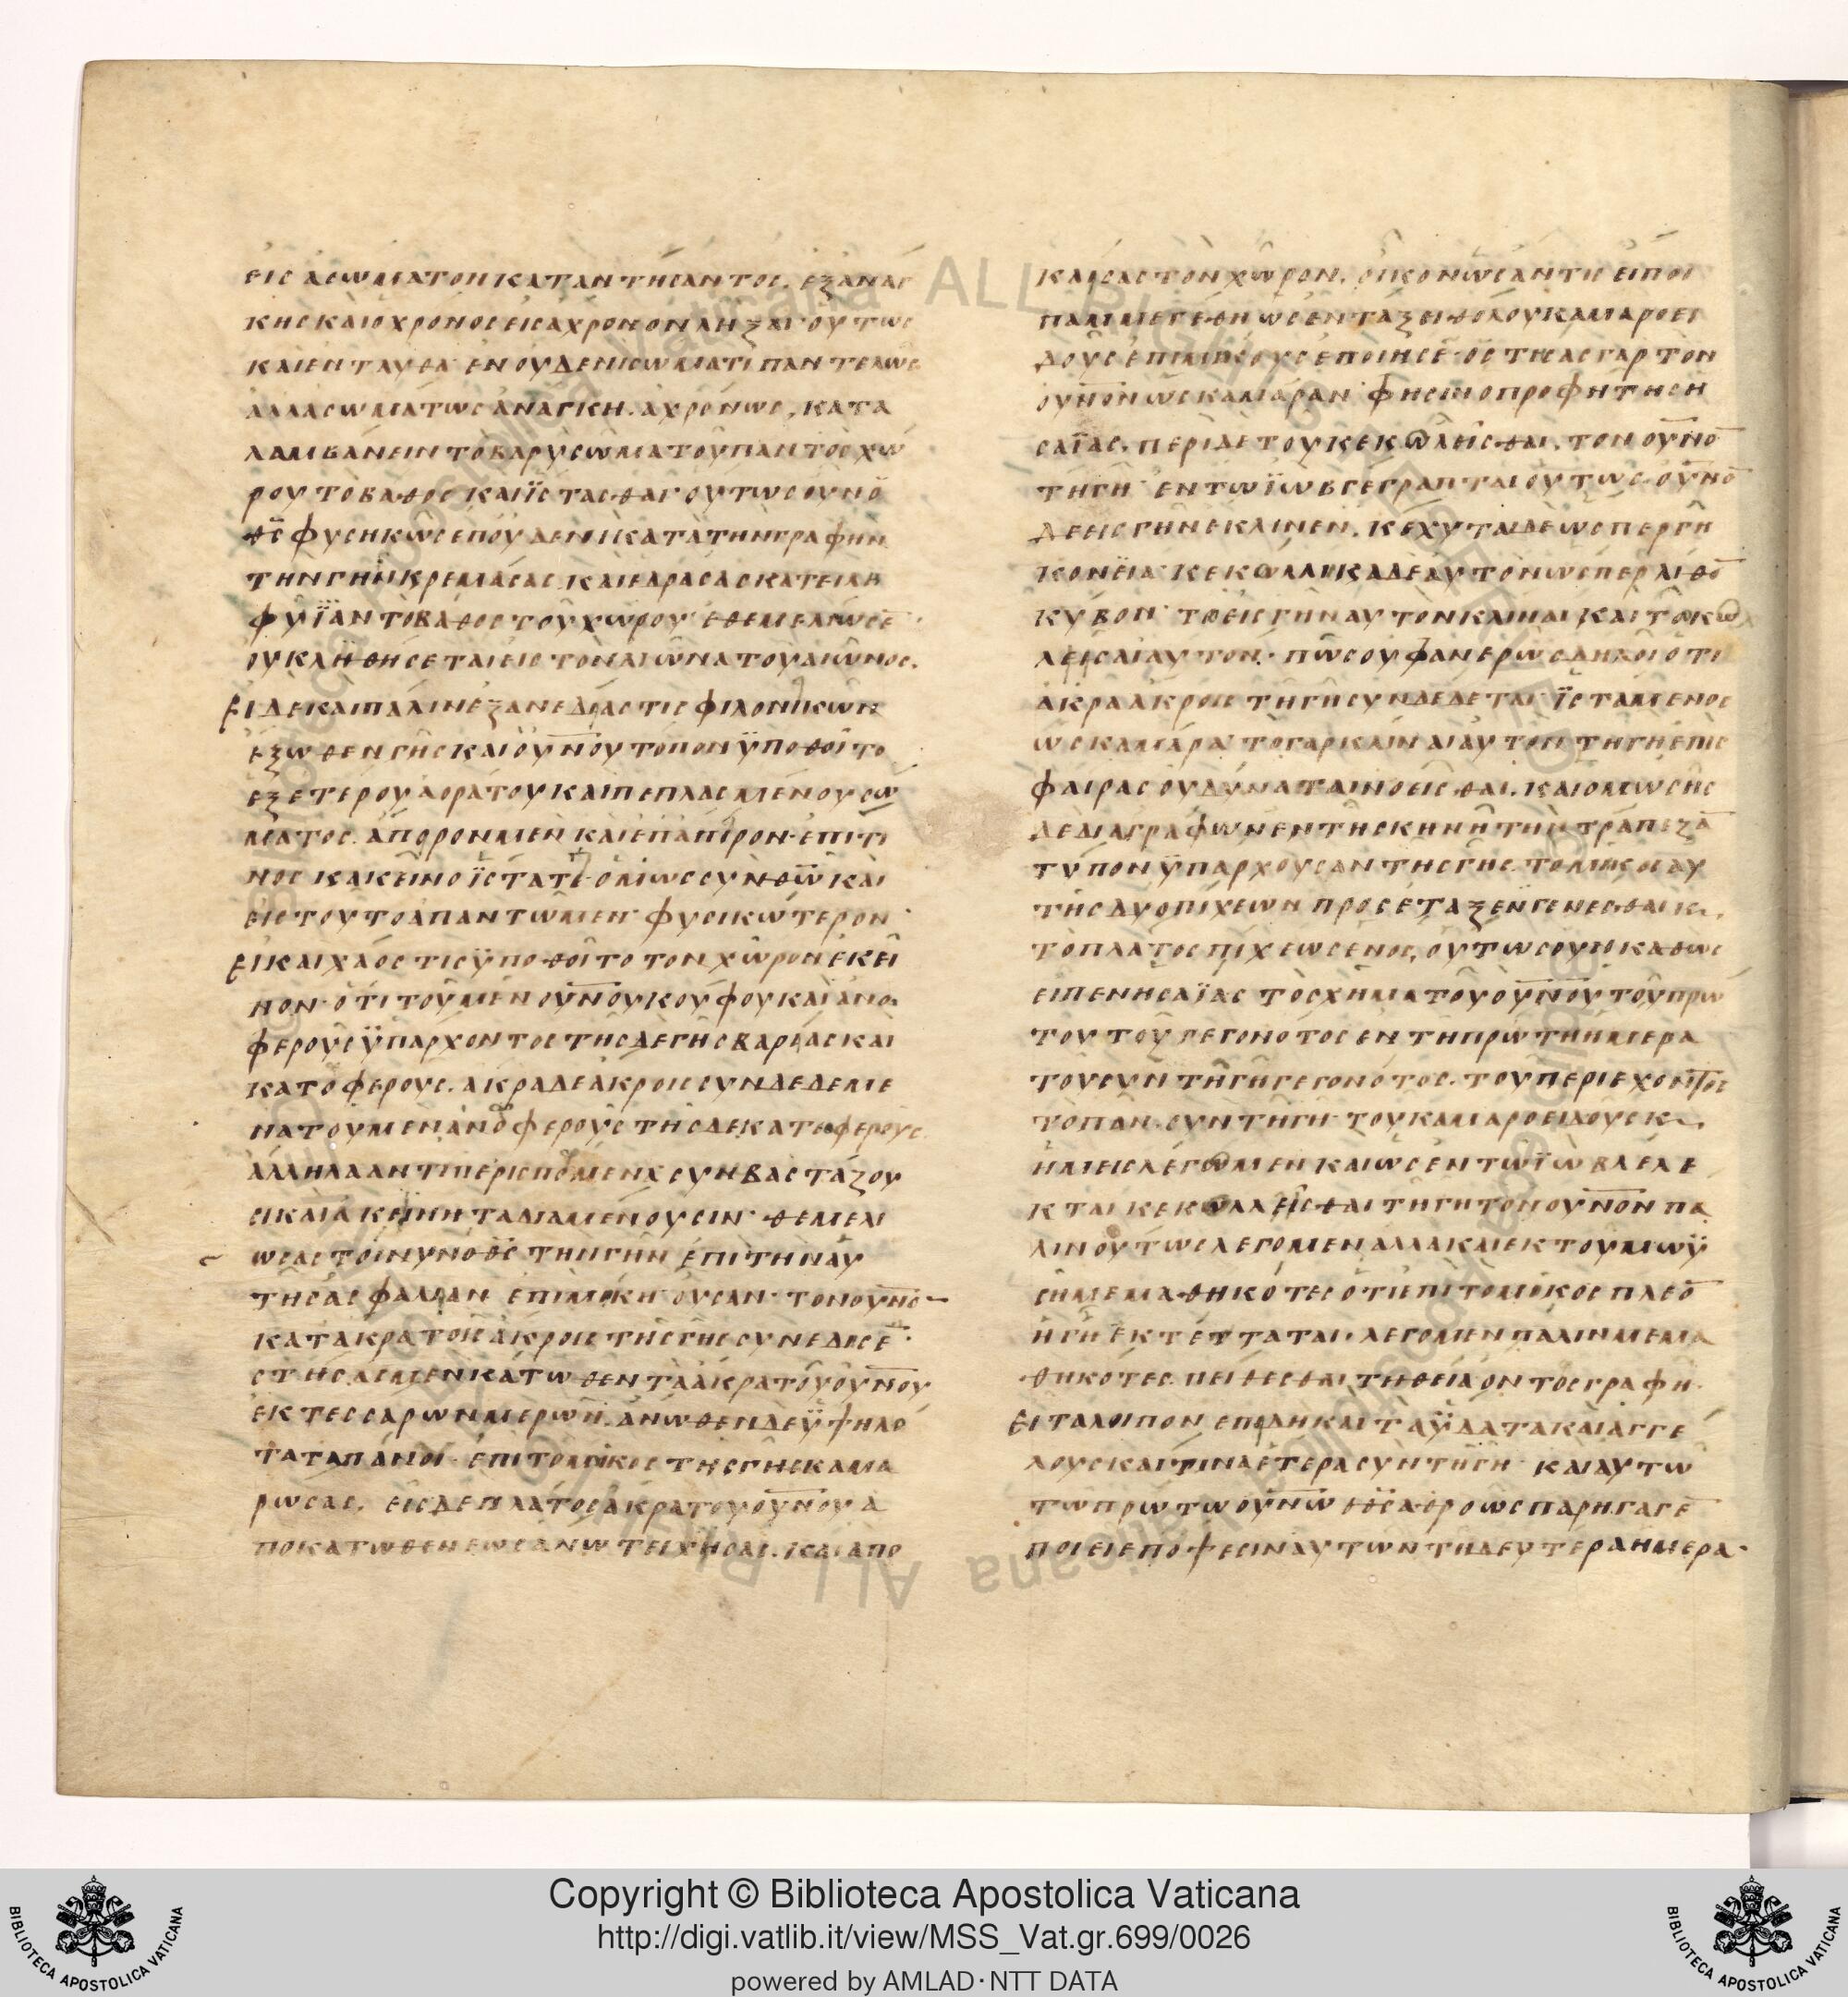 εις ασωματον καταντησαντος. εξ αναγ
κης και ο χρονος εις αχρονον ληξαι· ουτως
και ενταυθα εν ουδενι σωματι παντελως
αλλ ασωματως αναγκη. αχρονως, κατα
λαμβανειν το βαρυ σωμα του παντος χω
ρου το βαθος και ϊστασθαι ουτως ουν ο
θς φυσηκως επ ουδενι κατα την γραφην
την γην κρεμασας και εδρασας κατειλη
φυϊαν το βαθος του χωρου· εθεμελιωσε
ου κληθησεται εις τον αιωνα του αιωνος.
Ει δε και παλιν εξ ανεδιας τις φιλονικων
εξωθεν γης και ουνου τοπον ϋποθοιτο
εξ ετερου αορατου και πεπλασμενου σω
ματος. απορον μεν και επ απιρον· επι τι
νος κακεινο ϊστατε· ομως συν θω και
εις τουτο απαντωμεν φυσικωτερον·
Ει και χαος τις ϋποθοιτο τον χωρον εκει
νον· οτι του μεν ουνου κουφου και ανο
φερους ϋπαρχοντος της δε γης βαριας και
κατοφερους. ακρα δε ακροις συνδεδεμε
να του μεν ανοφερους της δε κατοφερους
αλληλα αντιπερισπομενα συνβασταζου
σι και ακινητα διαμενουσιν· θεμελι
ωσας τοινυν ο θς την γην επι την αυ
της ασφαλιαν επιμηκη ουσαν· τον ουνο
κατ ακρα τοις ακροις της γης συνεδισε·
στησας μεν κατωθεν τα ακρα του ουνου
εκ τεσσαρων μερων. ανωθεν δε ϋψηλο
τατα πανοι επι το μηκος της γης καμα
ρωσας. εις δε πλατος ακρα του ουνου α
ποκατωθεν εως ανω τειχησας. και απο
κλισας τον χωρον. οικον ως αν τις ειποι
παμμεγεθη ως εν ταξει θολου καμαροει
δους επιμηκους εποιησε· ο στησας γαρ τον
ουνον ως καμαραν φησιν ο προφητης η
σαϊας. περι δε του κεκωλησθαι. τον ουνο
τη γη εν τω ϊωβ γεγραπται ουτως· ουνο
δε εις γην εκλινεν. κεχυται δε ωσπερ γη
κονϊα κεκωλληκα δε αυτον ωσπερ λιθο
κυβον το εις γην αυτον κλιναι και το κω
λεισαι αυτον· πως ου φανερως δηλοι οτι
ακρα ακροις τη γη συνδεδεται ϊσταμενος
ως καμαρα· το γαρ κλιναι αυτον τη γη επι σ
φαιρας ου δυναται νοεισθαι. και ο μωσης
δε διαγραφων εν τη σκηνη την τραπεζα
τυπον ϋπαρχουσαν της γης· το μηκος αυ
της δυο πιχεων προσεταξεν γενεσθαι κ,
το πλατος πιχεως ενος, ουτως ουν καθως
ειπεν ησαϊας το σχημα του ουνου του πρω
του του γεγονοτος εν τη πρωτη ημερα
του συν τη γη γεγονοτος. του περιεχοντος
το παν συν τη γη· του καμαροειδους κ,
ημεις λεγομεν και ως εν τω ϊωβ λελε
κται κεκωλλεισθαι τη γη τον ουνον πα
λιν ουτως λεγομεν αλλα και εκ του μωϋ
ση μεμαθηκοτες οτι επι το μηκος πλεο
η γη εκτετταται· λεγομεν παλιν μεμα
θηκοτες πειθεσθαι τη θεια οντως γραφη·
Ειτα λοιπον επιδη και τα ϋδατα και αγγε
λους και τινα ετερα συν τη γη και αυτω
τω πρωτω ουνω ο θς αθροως παρηγαγε
ποιει επ οψεσιν αυτων τη δευτερα ημερα·
Copyright © Biblioteca Apostolica Vaticana
http://digi.vatlib.it/view/MSS_Vat.gr.699/0026
powered by AMLAD·NTT DATA
BIBLIOTECA APOSTOLICA VATICANA
BIBLIOTECA APOSTOLICA VATICANA